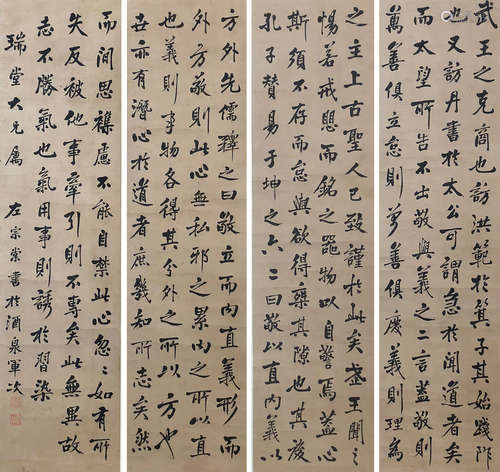 武王之克商也訪洪範於箕子其始踐阼
也又訪丹書於太公可謂急於聞道者矣
而太望所告不出敬與義之二言蓋敬則
萬善俱立怠則萬善俱廢義則理為
之主上古聖人已致謹於此矣武王聞之
惕若戒懼而銘之器物以自警焉蓋心
斯須不存而怠與欲得乘其隙也其後
孔子贊易于坤之六二曰敬以直內義以
方外先儒釋之曰敬立而內直義形而
外方敬則此心無私邪之累內之所以直
也義則事物各得其分外之所以方也
世亦有潛心於道者庶幾知所志矣然
而間思襍慮不能自禁此心忽忽如有所
失反被他事牽引則不專矣此無異故
志不勝氣也氣用事則誘於習染
瑞堂大兄屬 左宗棠書於酒泉軍次